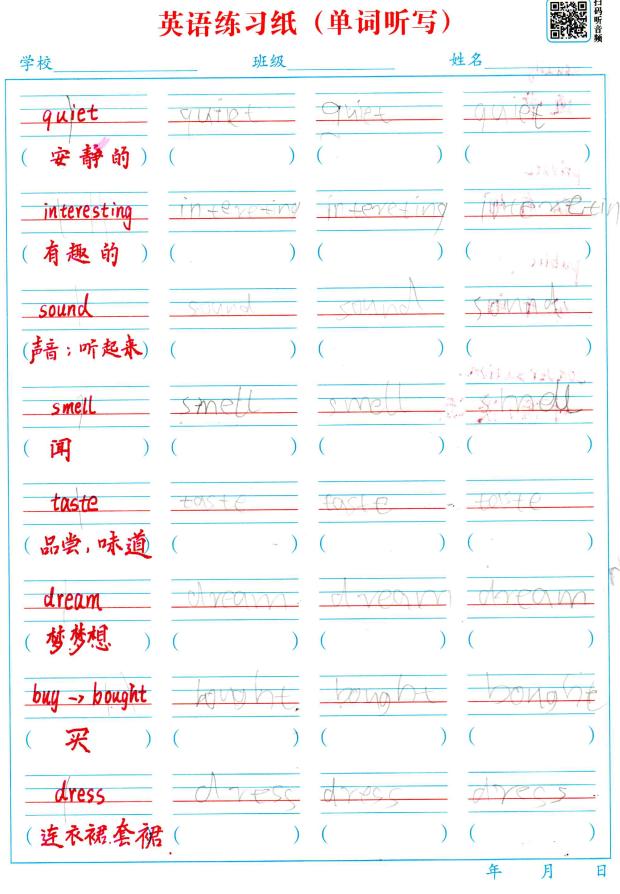 英语练习纸（单词听写）
扫码听音频
学校 班级 姓名
quiet quiet quiet quiet
( 安静的 ) ( ) ( ) ( )
interesting intereting intereting
( 有趣的 ) ( ) ( ) ( )
sound sound sound sound
(声音；听起来) ( ) ( ) ( )
smell smell smell smell
( 闻 ) ( ) ( ) ( )
taste taste taste taste
( 品尝，味道 ) ( ) ( ) ( )
dream dream dream dream
( 梦.梦想 ) ( ) ( ) ( )
buy → bought bought. bought bought
( 买 ) ( ) ( ) ( )
dress dress dress dress
(连衣裙.套裙) ( ) ( ) ( )
年 月 日